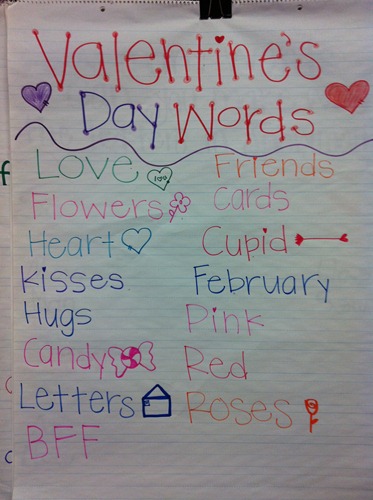 Valentine's
Day Words
Love
Flowers
Heart
Kisses
Hugs
Candy
Letters
BFF
Friends
Cards
Cupid
February
Pink
Red
Roses